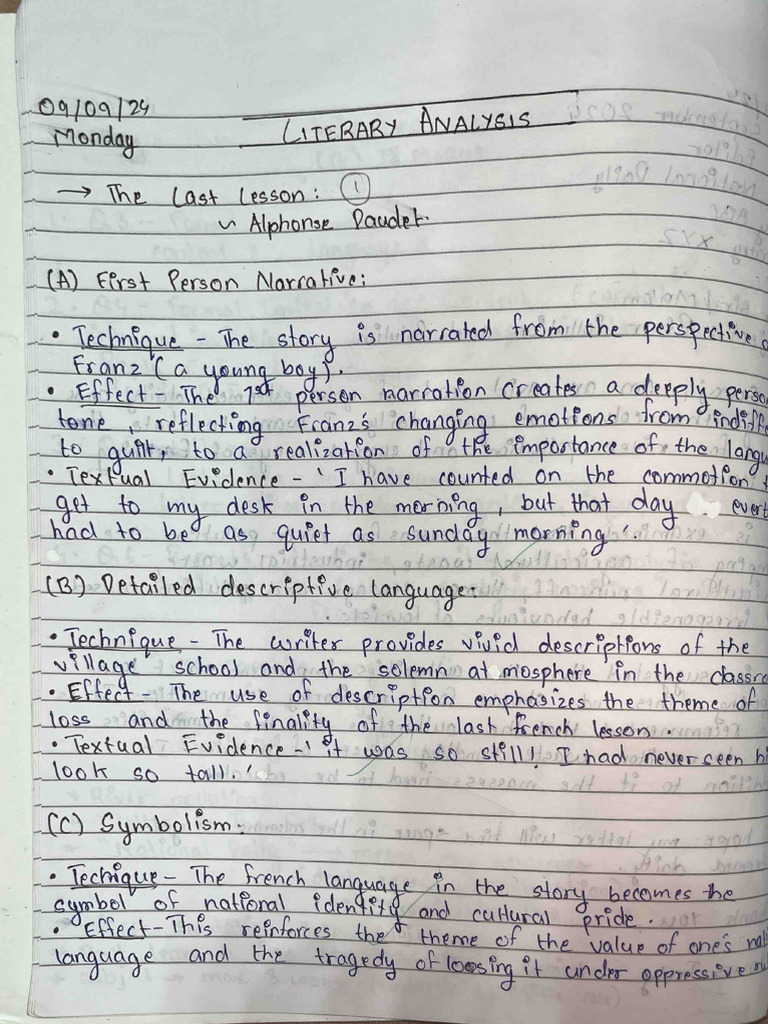 09/09/24
Monday
LITERARY ANALYSIS
→ The Last Lesson: ①
~ Alphonse Daudet.
(A) First Person Narrative:
• Technique - The story is narrated from the perspective
Franz (a young boy).
• Effect - The 1st person narration creates a deeply perso
tone, reflecting Franz's changing emotions from indiffe
to guilt, to a realization of the importance of the langu
• Textual Evidence - ' I have counted on the commotion t
get to my desk in the morning, but that day evert
had to be as quiet as sunday morning '.
(B) Detailed descriptive language:
• Technique - The writer provides vivid descriptions of the
village school and the solemn at mosphere in the classro
• Effect - The use of description emphasizes the theme of
loss and the finality of the last french lesson.
• Textual Evidence - ' it was so still! I had never seen hi
look so tall. '
(C) Symbolism.
• Techique - The french language in the story becomes the
symbol of national identity and cultural pride.
• Effect - This reinforces the theme of the value of one's nati
language and the tragedy of loosing it under oppressive ru